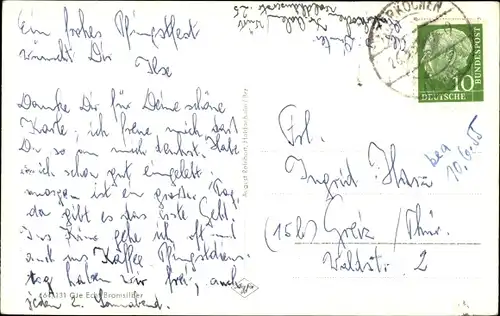 Ein frohes Pfingstfest
wünscht Dir
Ilse
Danke Dir für Deine schöne
Karte, ich freue mich, dass
Du so an mich denkst. Habe
mich schon gut eingelebt,
morgen ist ein großer Tag,
da gibt es das erste Geld.
Ins Kino gehe ich oft und
auch zu Kaffee. Pfingstdiens-
tag haben wir frei, auch
jeden 2. Sonnabend.
OBERKOCHEN
10
DEUTSCHE BUNDESPOST
bea
10.6.55
Frl.
Ingrid
(15b) Greiz / Thür.
Waldstr. 2
August Reichart
Gle Echt Bromsilber